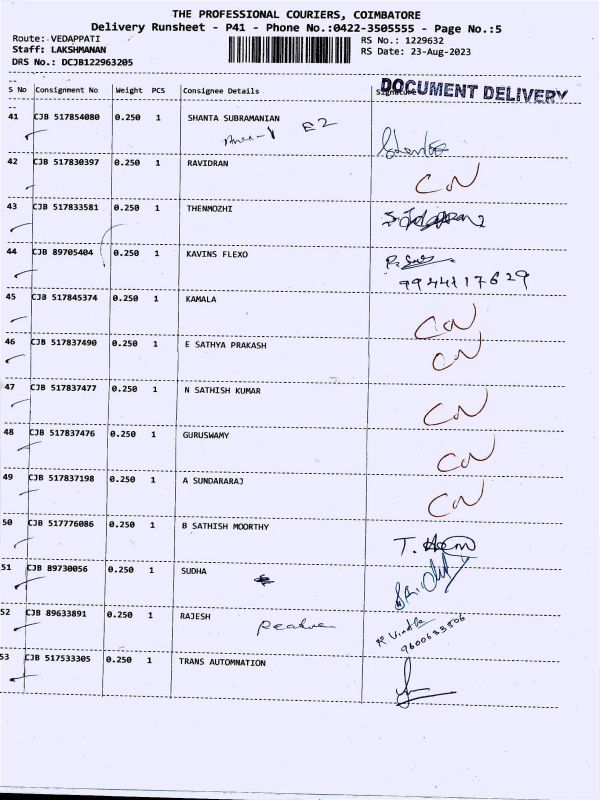 THE PROFESSIONAL COURIERS, COIMBATORE
Delivery Runsheet - P41 - Phone No.:0422-3505555 - Page No.:5
Route: VEDAPPATI RS No.: 1229632
Staff: LAKSHMANAN RS Date: 23-Aug-2023
DRS No.: DCJB122963205
DOCUMENT DELIVERY
S No Consignment No Weight PCS Consignee Details Signature
41 CJB 517854080 0.250 1 SHANTA SUBRAMANIAN
E2
42 CJB 517830397 0.250 1 RAVIDRAN CN
43 CJB 517833581 0.250 1 THENMOZHI
44 CJB 89705404 0.250 1 KAVINS FLEXO
9944117629
45 CJB 517845374 0.250 1 KAMALA CN
46 CJB 517837490 0.250 1 E SATHYA PRAKASH CN
47 CJB 517837477 0.250 1 N SATHISH KUMAR CN
48 CJB 517837476 0.250 1 GURUSWAMY CN
49 CJB 517837198 0.250 1 A SUNDARARAJ CN
50 CJB 517776086 0.250 1 B SATHISH MOORTHY
51 CJB 89730056 0.250 1 SUDHA
52 CJB 89633891 0.250 1 RAJESH
9600633506
53 CJB 517533305 0.250 1 TRANS AUTOMNATION